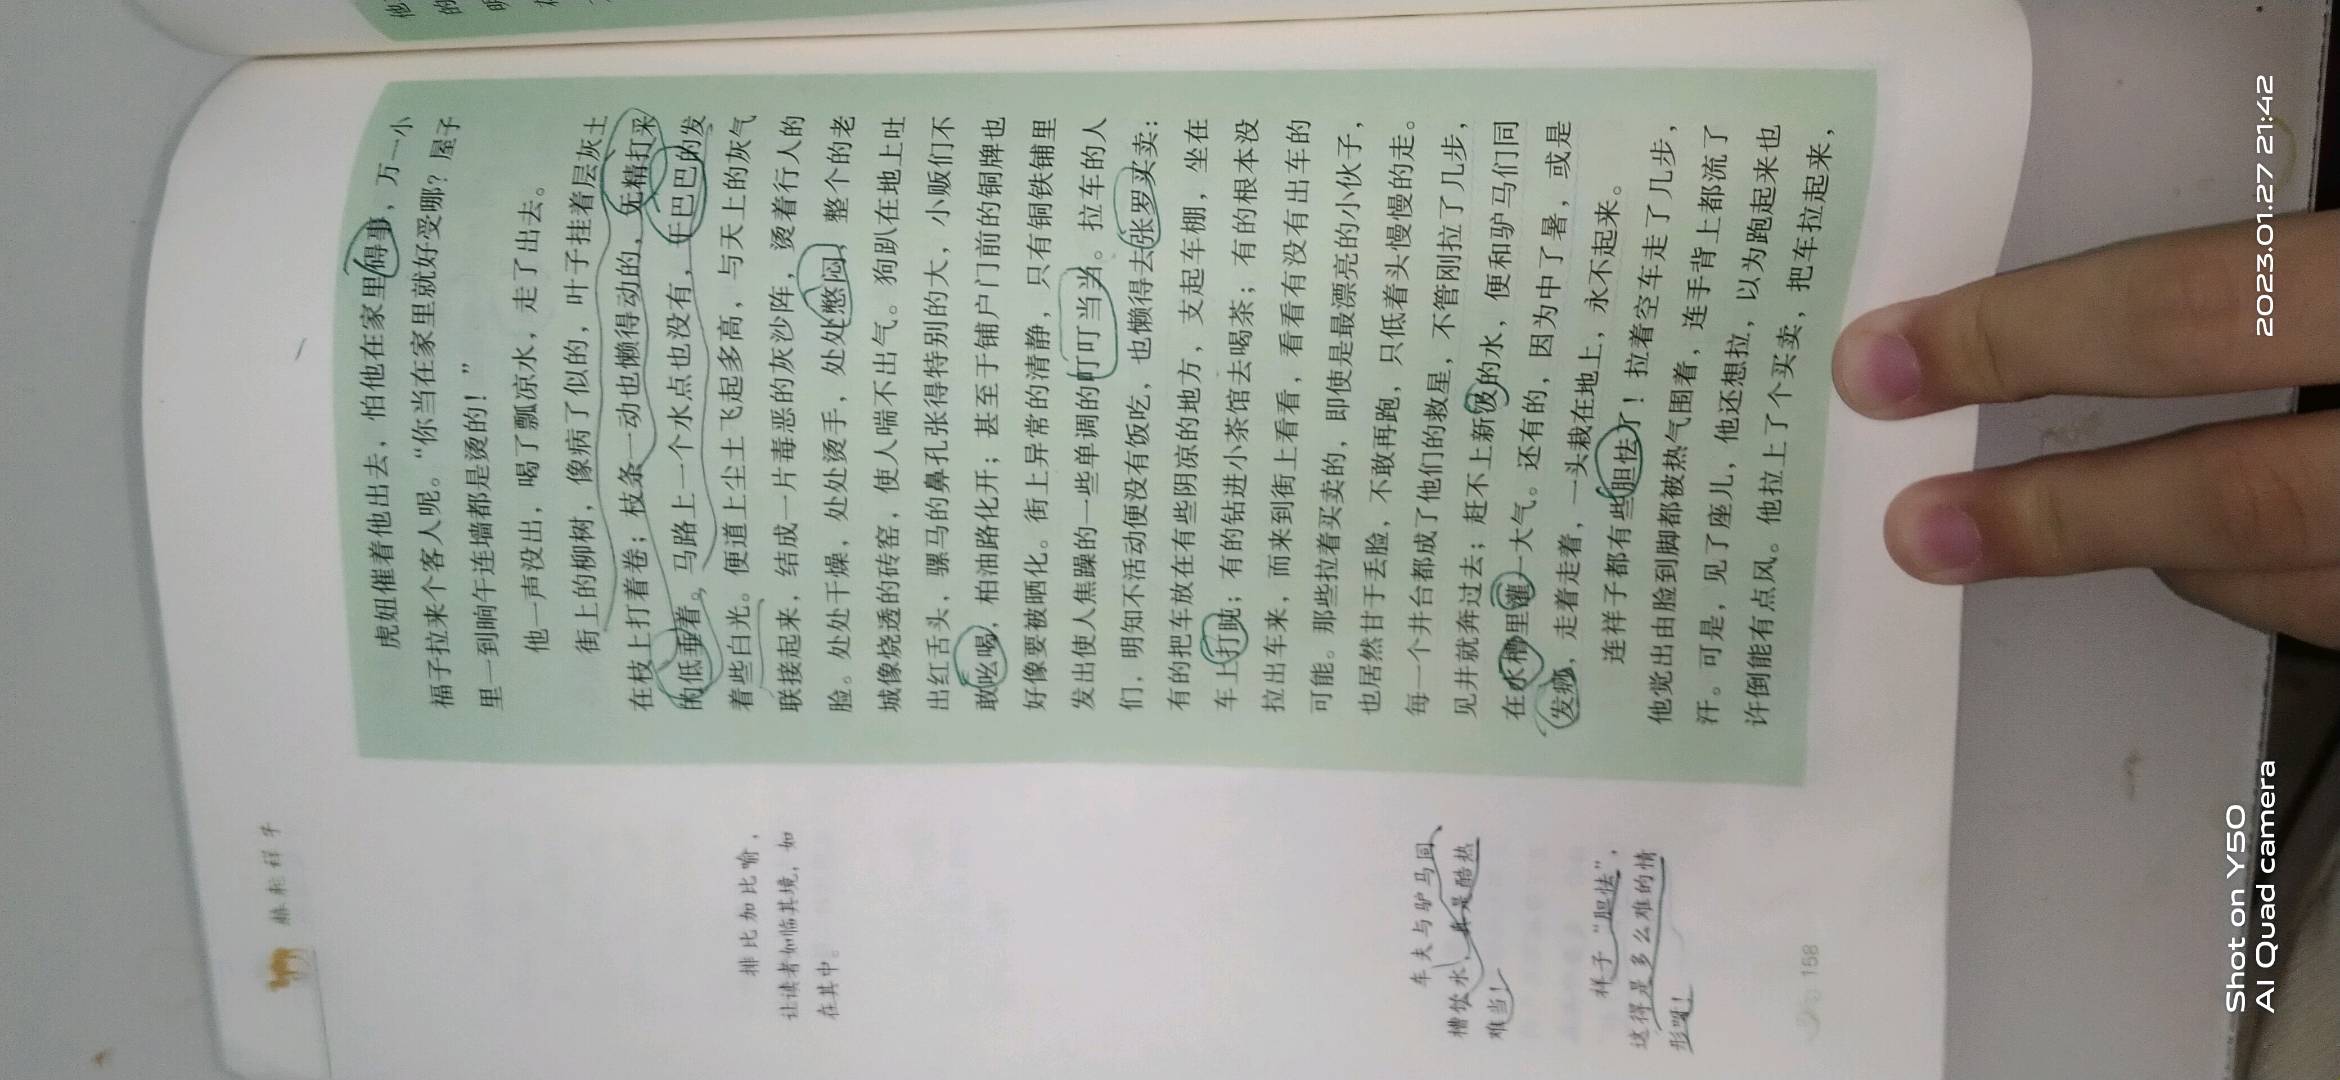 骆驼祥子
虎妞催着他出去，怕他在家里碍事，万一小
福子拉来个客人呢。“你当在家里就好受哪？屋子
里一到晌午连墙都是烫的！”
他一声没出，喝了瓢凉水，走了出去。
街上的柳树，像病了似的，叶子挂着层灰土
在枝上打着卷；枝条一动也懒得动的，无精打采
的低垂着。马路上一个水点也没有，干巴巴的发
着些白光。便道上尘土飞起多高，与天上的灰气
联接起来，结成一片毒恶的灰沙阵，烫着行人的
脸。处处干燥，处处烫手，处处憋闷，整个的老
城像烧透的砖窑，使人喘不出气。狗趴在地上吐
出红舌头，骡马的鼻孔张得特别的大，小贩们不
敢吆喝，柏油路化开；甚至于铺户门前的铜牌也
好像要被晒化。街上异常的清静，只有铜铁铺里
发出使人焦躁的一些单调的叮叮当当。拉车的人
们，明知不活动便没有饭吃，也懒得去张罗买卖：
有的把车放在有些阴凉的地方，支起车棚，坐在
车上打盹；有的钻进小茶馆去喝茶；有的根本没
拉出车来，而来到街上看看，看看有没有出车的
可能。那些拉着买卖的，即使是最漂亮的小伙子，
也居然甘于丢脸，不敢再跑，只低着头慢慢的走。
每一个井台都成了他们的救星，不管刚拉了几步，
见井就奔过去；赶不上新汲的水，便和驴马们同
在水槽里灌一大气。还有的，因为中了暑，或是
发痧，走着走着，一头栽在地上，永不起来。
连祥子都有些胆怯了！拉着空车走了几步，
他觉出由脸到脚都被热气围着，连手背上都流了
汗。可是，见了座儿，他还想拉，以为跑起来也
许倒能有点风。他拉上了个买卖，把车拉起来，
排比加比喻，
让读者如临其境，如
在其中。
车夫与驴马同
槽饮水，真是酷热
难当！
祥子“胆怯”，
这得是多么难的情
形呀！
158
2023.01.27 21:42
Shot on Y50
AI Quad camera